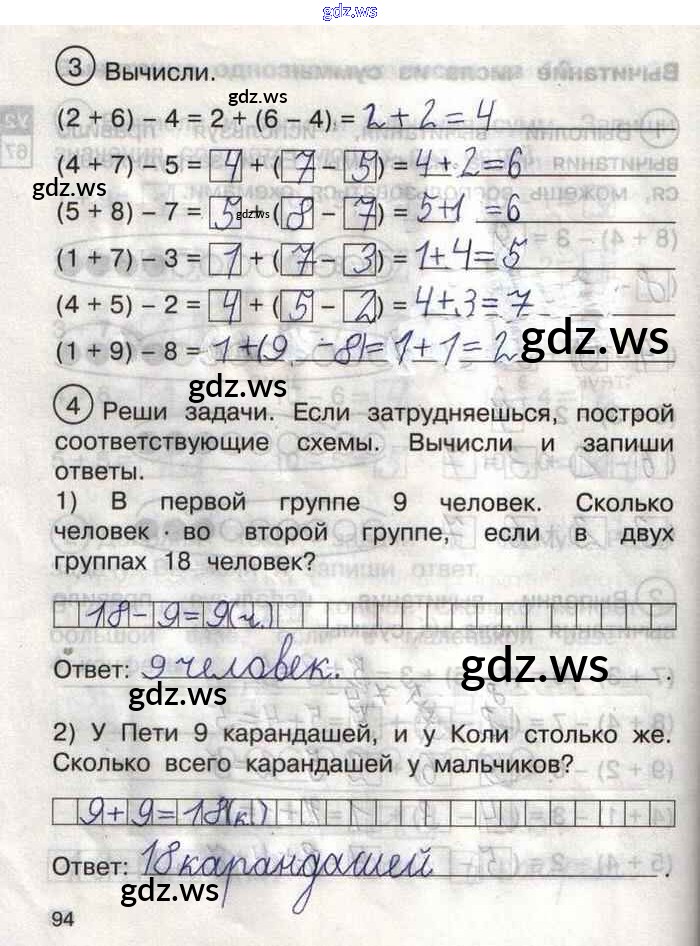 gdz.ws
3 Вычисли.
gdz.ws
(2 + 6) – 4 = 2 + (6 – 4) = 2 + 2 = 4
(4 + 7) – 5 = 4 + (7 – 5) = 4 + 2 = 6
gdz.ws
(5 + 8) – 7 = 5 + (8 – 7) = 5+1 = 6
gdz.ws
(1 + 7) – 3 = 1 + (7 – 3) = 1 + 4 = 5
(4 + 5) – 2 = 4 + (5 – 2) = 4 + 3 = 7
(1 + 9) – 8 = 1 + (9 – 8) = 1 + 1 = 2
gdz.ws
gdz.ws
4 Реши задачи. Если затрудняешься, построй
соответствующие схемы. Вычисли и запиши
ответы.
gdz.ws
1) В первой группе 9 человек. Сколько
человек во второй группе, если в двух
группах 18 человек?
18 – 9 = 9 (ч.)
Ответ: 9 человек.
gdz.ws
gdz.ws
2) У Пети 9 карандашей, и у Коли столько же.
Сколько всего карандашей у мальчиков?
9 + 9 = 18 (к.)
gdz.ws
Ответ: 18 карандашей.
gdz.ws
gdz.ws
94